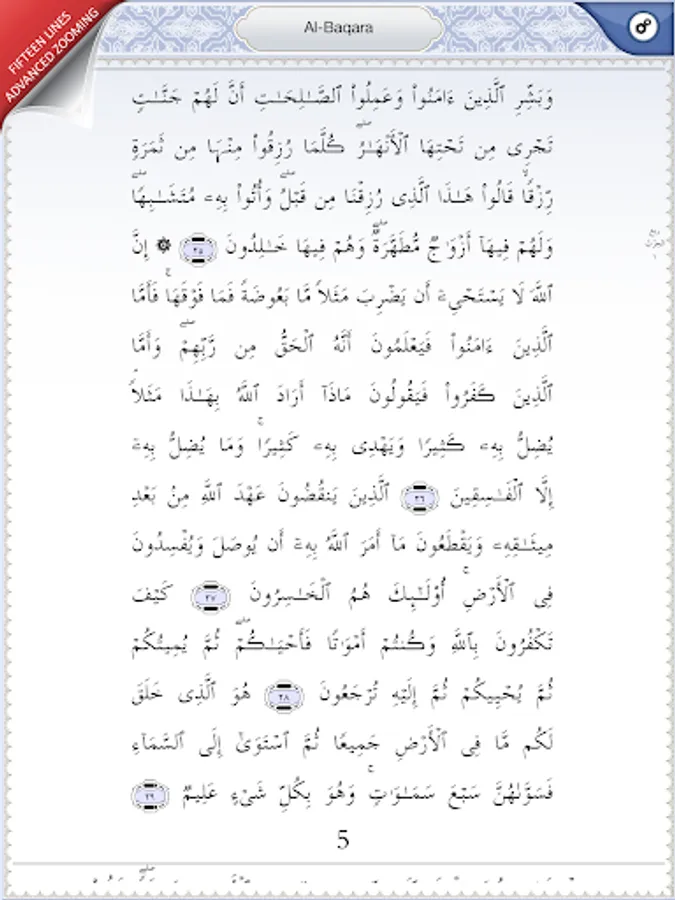 FIFTEEN LINES
ADVANCED ZOOMING
Al-Baqara
وَبَشِّرِ ٱلَّذِينَ ءَامَنُوا۟ وَعَمِلُوا۟ ٱلصَّـٰلِحَـٰتِ أَنَّ لَهُمْ جَنَّـٰتٍ
تَجْرِى مِن تَحْتِهَا ٱلْأَنْهَـٰرُ ۖ كُلَّمَا رُزِقُوا۟ مِنْهَا مِن ثَمَرَةٍ
رِّزْقًا ۙ قَالُوا۟ هَـٰذَا ٱلَّذِى رُزِقْنَا مِن قَبْلُ ۖ وَأُتُوا۟ بِهِۦ مُتَشَـٰبِهًا ۖ
وَلَهُمْ فِيهَآ أَزْوَٰجٌ مُّطَهَّرَةٌ ۖ وَهُمْ فِيهَا خَـٰلِدُونَ ٢٥ ۞ إِنَّ
ٱللَّهَ لَا يَسْتَحْىِۦٓ أَن يَضْرِبَ مَثَلًا مَّا بَعُوضَةً فَمَا فَوْقَهَا ۚ فَأَمَّا
ٱلَّذِينَ ءَامَنُوا۟ فَيَعْلَمُونَ أَنَّهُ ٱلْحَقُّ مِن رَّبِّهِمْ ۖ وَأَمَّا
ٱلَّذِينَ كَفَرُوا۟ فَيَقُولُونَ مَاذَآ أَرَادَ ٱللَّهُ بِهَـٰذَا مَثَلًا ۘ
يُضِلُّ بِهِۦ كَثِيرًا وَيَهْدِى بِهِۦ كَثِيرًا ۚ وَمَا يُضِلُّ بِهِۦٓ
إِلَّا ٱلْفَـٰسِقِينَ ٢٦ ٱلَّذِينَ يَنقُضُونَ عَهْدَ ٱللَّهِ مِنۢ بَعْدِ
مِيثَـٰقِهِۦ وَيَقْطَعُونَ مَآ أَمَرَ ٱللَّهُ بِهِۦٓ أَن يُوصَلَ وَيُفْسِدُونَ
فِى ٱلْأَرْضِ ۚ أُو۟لَـٰٓئِكَ هُمُ ٱلْخَـٰسِرُونَ ٢٧ كَيْفَ
تَكْفُرُونَ بِٱللَّهِ وَكُنتُمْ أَمْوَٰتًا فَأَحْيَـٰكُمْ ۖ ثُمَّ يُمِيتُكُمْ
ثُمَّ يُحْيِيكُمْ ثُمَّ إِلَيْهِ تُرْجَعُونَ ٢٨ هُوَ ٱلَّذِى خَلَقَ
لَكُم مَّا فِى ٱلْأَرْضِ جَمِيعًا ثُمَّ ٱسْتَوَىٰٓ إِلَى ٱلسَّمَآءِ
فَسَوَّىٰهُنَّ سَبْعَ سَمَـٰوَٰتٍ ۚ وَهُوَ بِكُلِّ شَىْءٍ عَلِيمٌ ٢٩
5